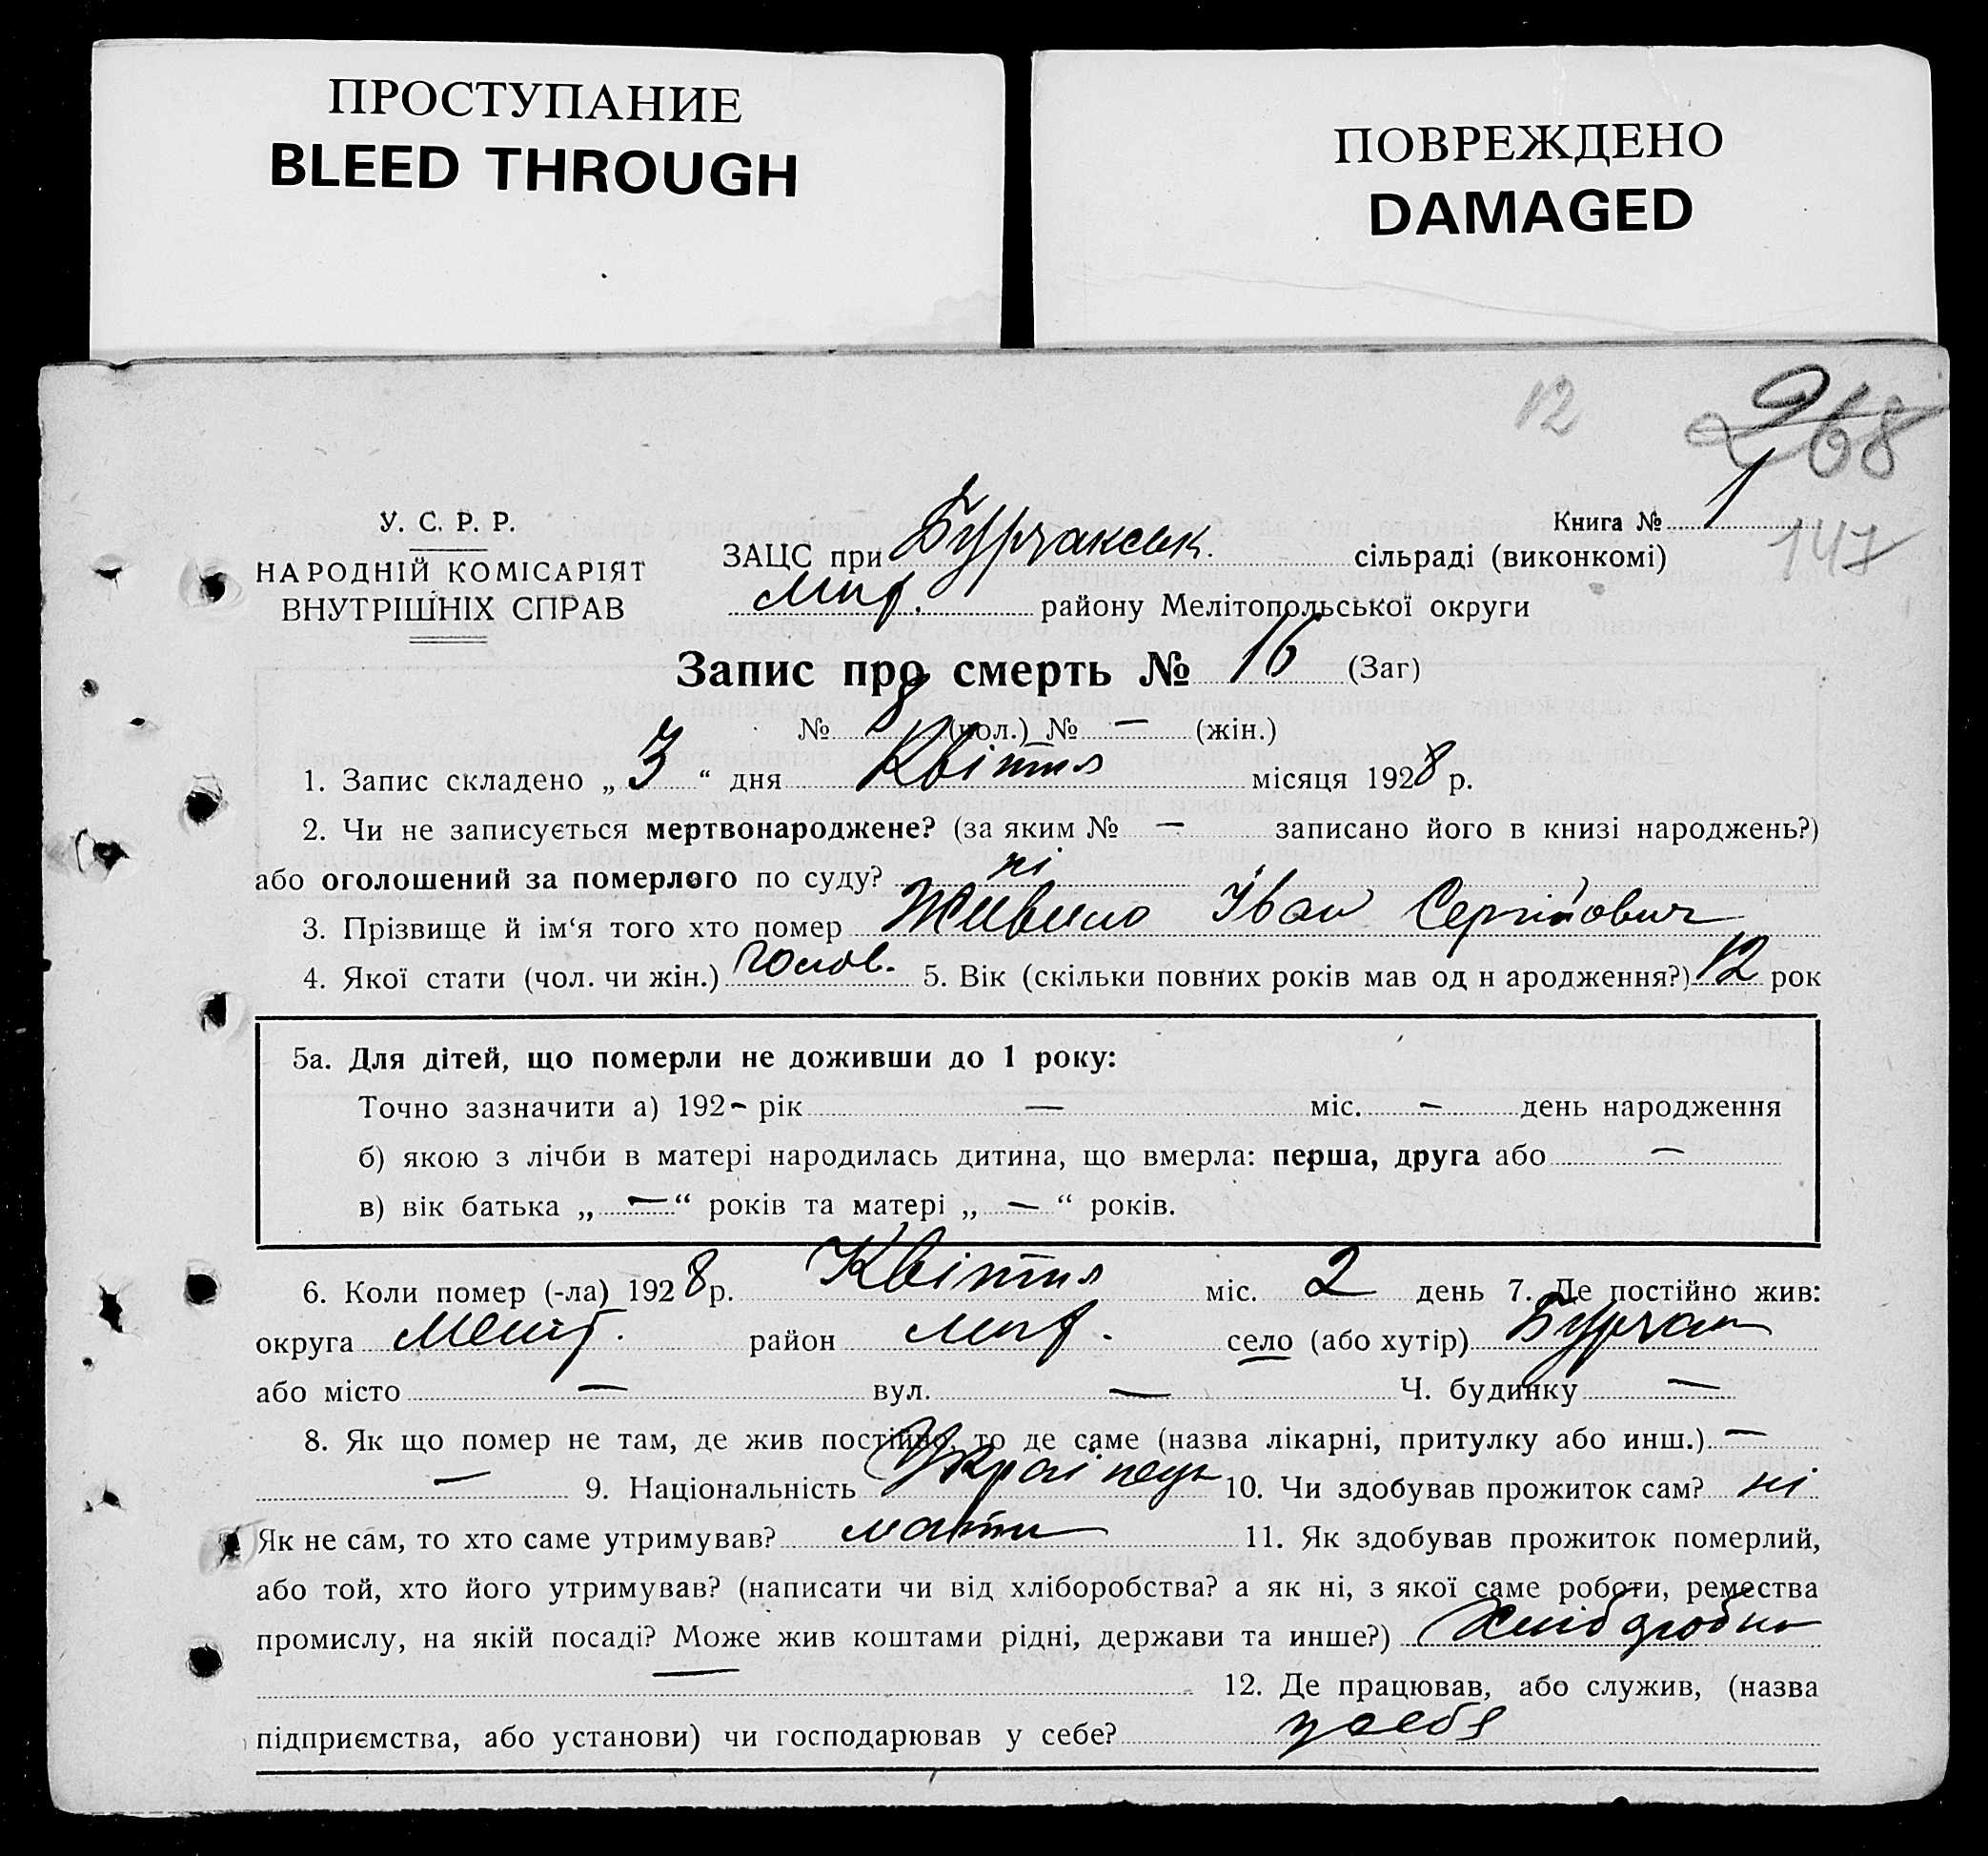 ПРОСТУПАНИЕ
BLEED THROUGH
ПОВРЕЖДЕНО
DAMAGED
12
268
У. С. Р. Р.
НАРОДНІЙ КОМІСАРІЯТ
ВНУТРІШНІХ СПРАВ
Книга № 1
147
ЗАЦС при Бурчакськ. сільраді (виконкомі)
району Мелітопольської округи
Запис про смерть № 16 (Заг)
№ 8 (чол.) № — (жін.)
1. Запис складено „ 3 “ дня Квітня місяця 1928 р.
2. Чи не записується мертвонароджене? (за яким № — записано його в книзі народжень?)
або оголошений за померлого по суду? ні
3. Прізвище й ім‘я того хто помер Живило Іван Сергійович
4. Якої стати (чол. чи жін.) чолов. 5. Вік (скільки повних років мав од н ародження?) 12 рок
5а. Для дітей, що померли не доживши до 1 року:
Точно зазначити а) 192 - рік — міс. — день народження
б) якою з лічби в матері народилась дитина, що вмерла: перша, друга або —
в) вік батька „ — “ років та матері „ — “ років.
6. Коли помер (-ла) 1928 р. Квітня міс. 2 день 7. Де постійно жив:
округа Меліт. район село (або хутір) Бурчак
або місто — вул. — Ч. будинку —
8. Як що помер не там, де жив постійно, то де саме (назва лікарні, притулку або инш.) —
— 9. Національність Українець 10. Чи здобував прожиток сам? ні
Як не сам, то хто саме утримував? мати 11. Як здобував прожиток померлий,
або той, хто його утримував? (написати чи від хліборобства? а як ні, з якої саме роботи, ремества
промислу, на якій посаді? Може жив коштами рідні, держави та инше?)
— 12. Де працював, або служив, (назва
підприємства, або установи) чи господарював у себе? у себе